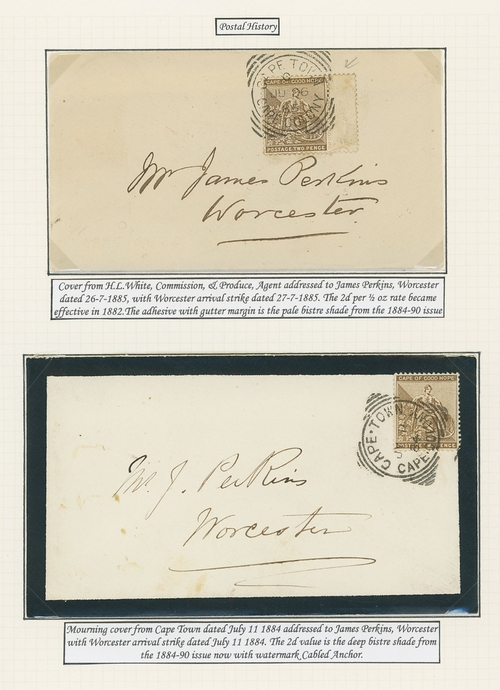 Postal History
CAPE TOWN
CAPE OF GOOD HOPE
CAPE COLONY
POSTAGE·TWO PENCE
Mr James Perkins
Worcester
Cover from H.L.White, Commission, & Produce, Agent addressed to James Perkins, Worcester
dated 26-7-1885, with Worcester arrival strike dated 27-7-1885. The 2d per ½ oz rate became
effective in 1882.The adhesive with gutter margin is the pale bistre shade from the 1884-90 issue
CAPE OF GOOD HOPE
CAPE·TOWN
CAPE
Mr. J. Perkins
Worcester
Mourning cover from Cape Town dated July 11 1884 addressed to James Perkins, Worcester
with Worcester arrival strike dated July 11 1884. The 2d value is the deep bistre shade from
the 1884-90 issue now with watermark Cabled Anchor.